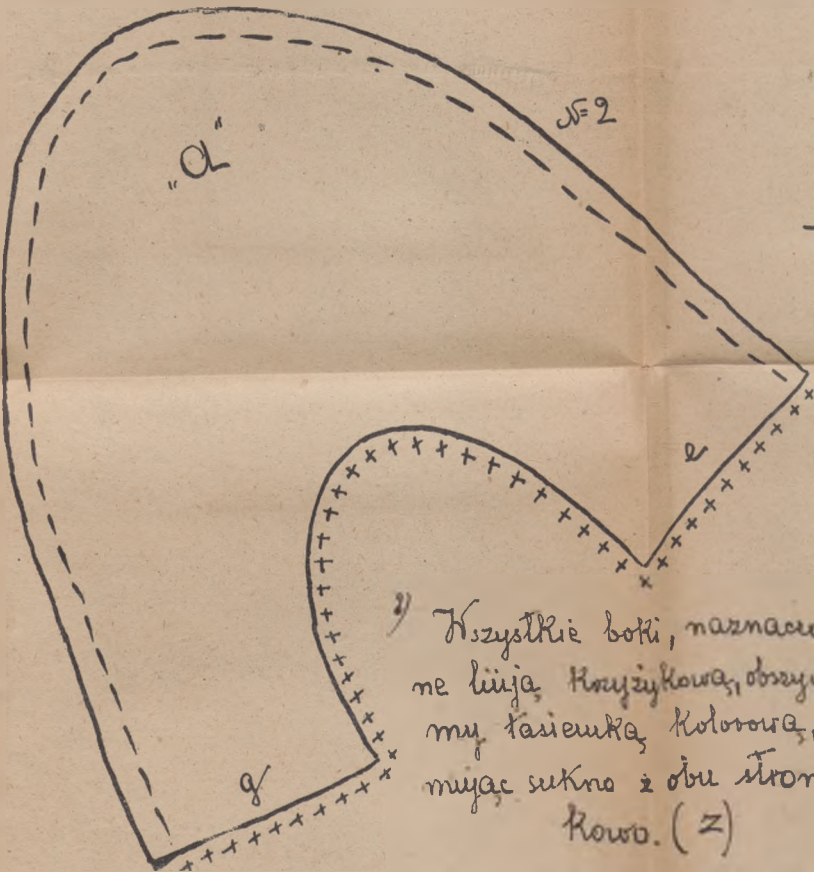 № 2
„a"
e
2) Wszystkie boki, naznaczo
ne linją krzyżykową, obszyw
my tasiemką kolorową,
mując sukno z obu stron
kowo. (Z)
g